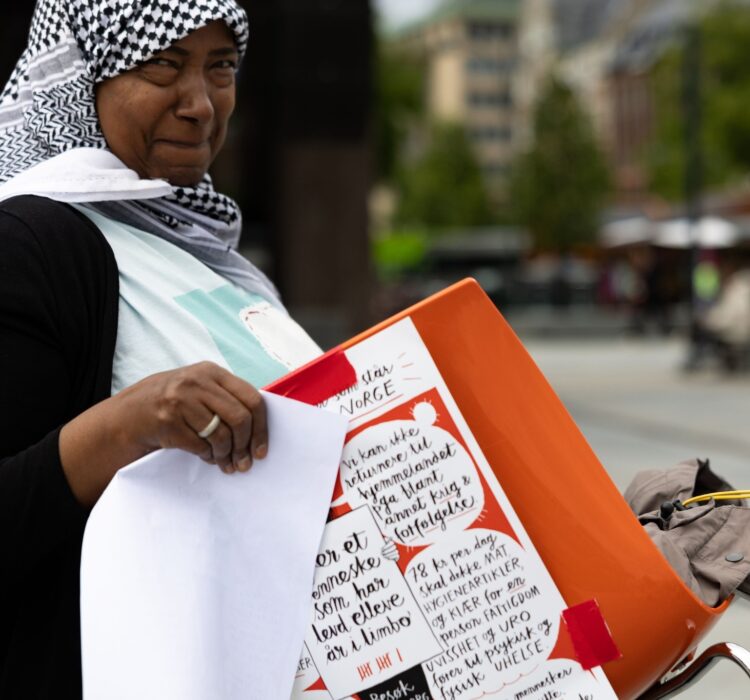 som står
NORGE
Vi kan ikke
returnere til
hjemmelandet
pga blant
annet krig &
forfølgelse
er et
menneske
som har
levd elleve
år i limbo
78 kr per dag
skal dekke MAT
HYGIENEARTIKLER,
og KLÆR for en
person. FATTIGDOM
UVISSHET og URO
fører til psykisk og
fysisk UHELSE.
mennesker
Besøk